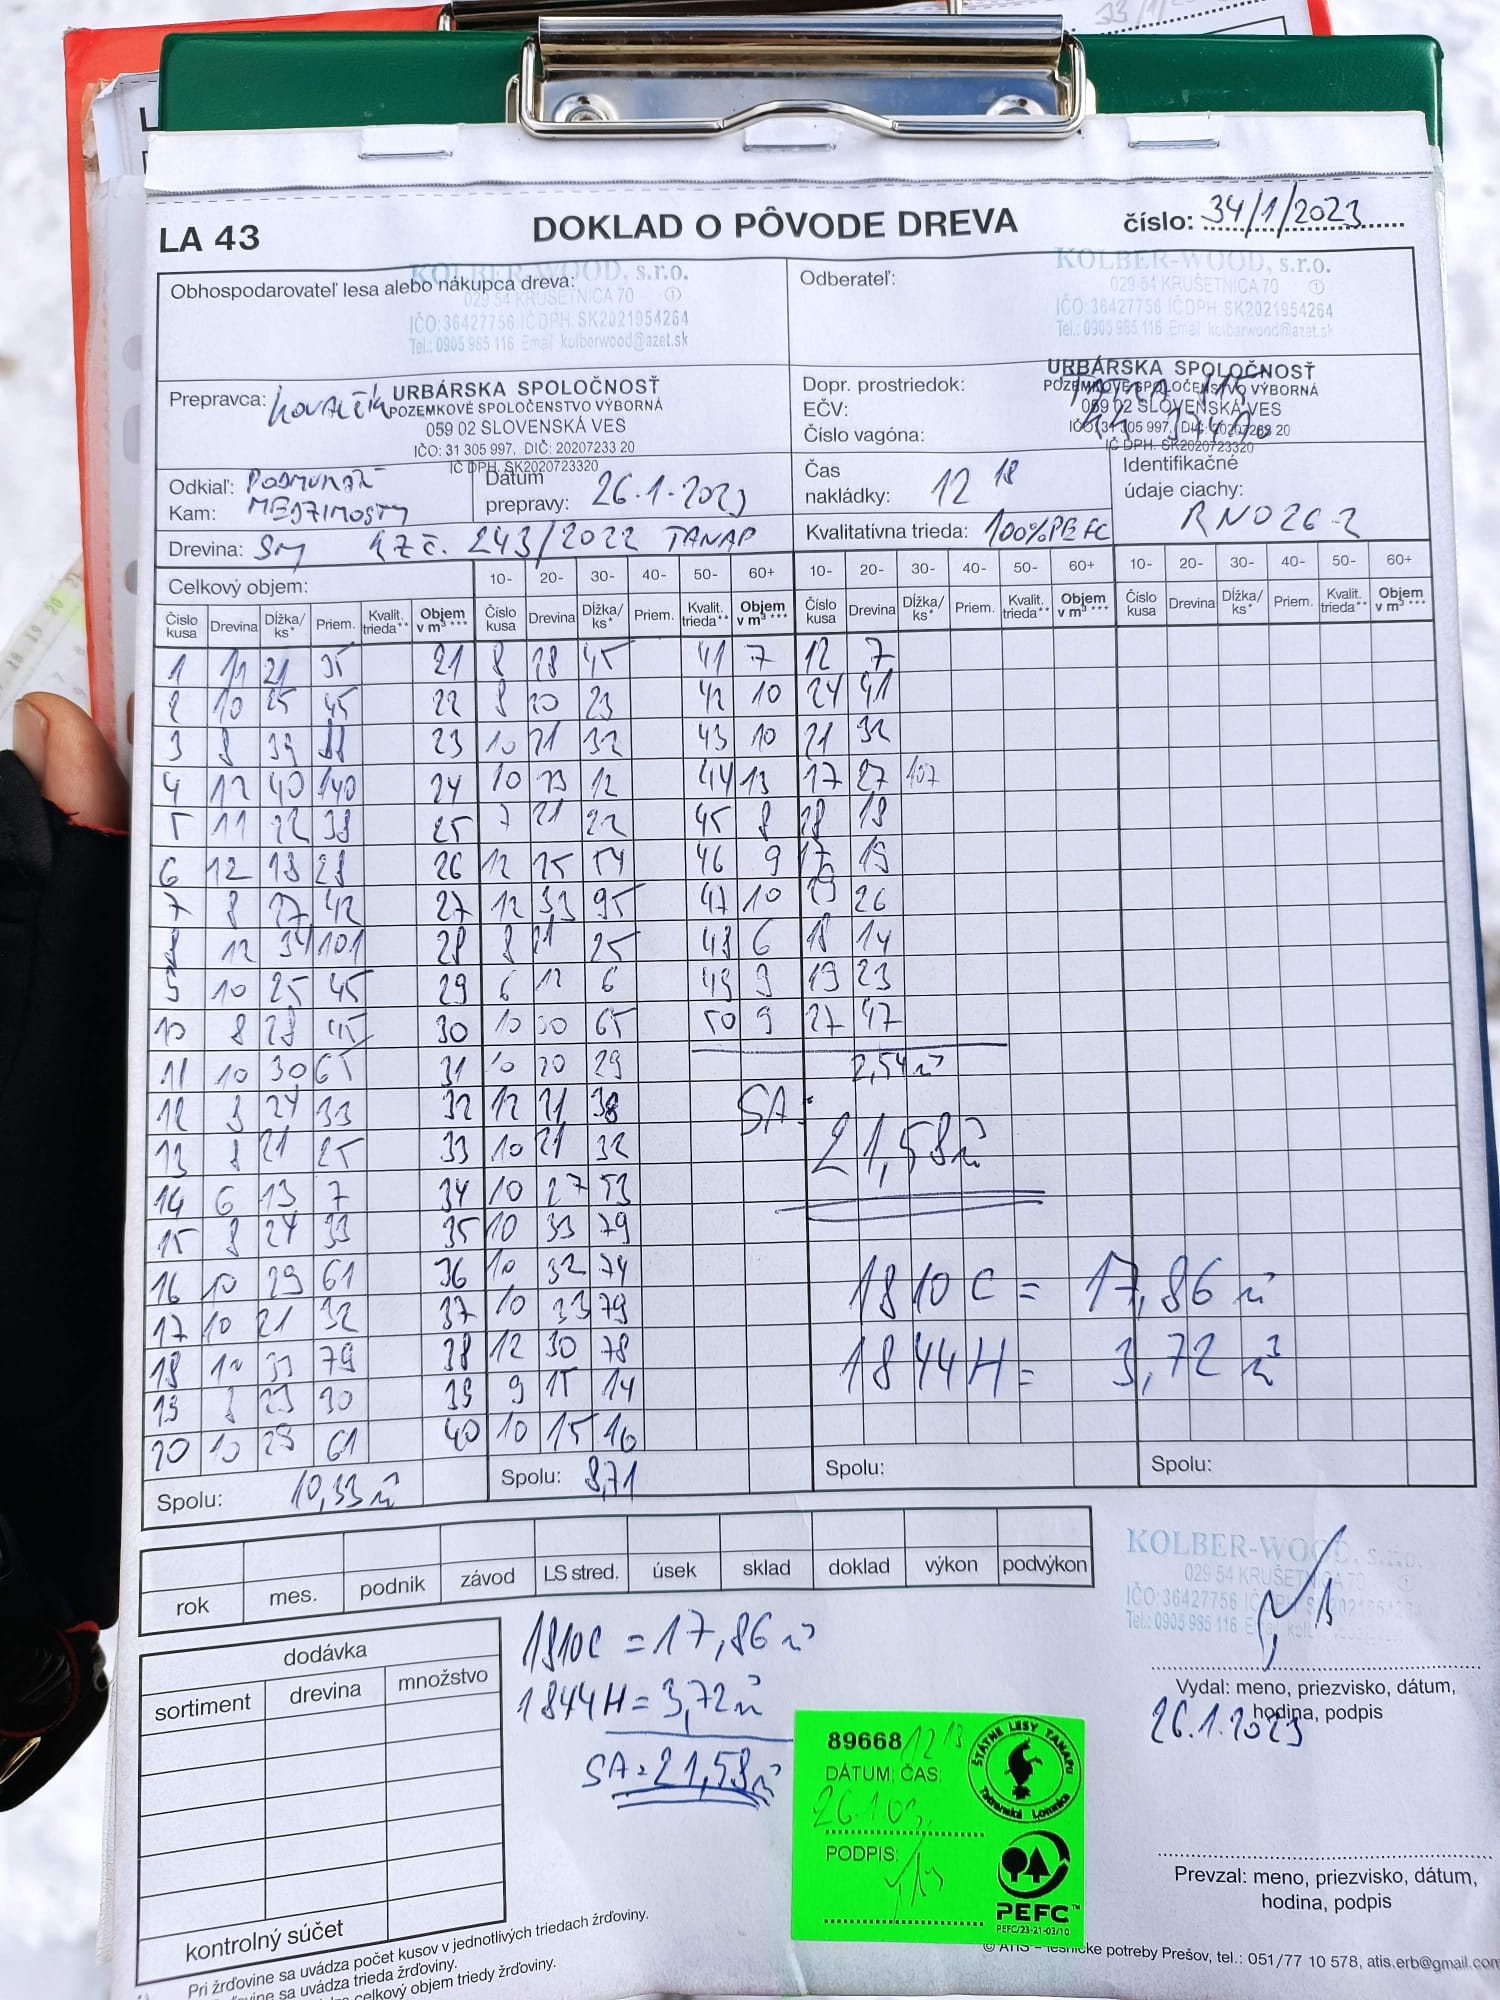 LA 43
DOKLAD O PÔVODE DREVA
číslo: 34/1/2023
Obhospodarovateľ lesa alebo nákupca dreva:
KOLBER-WOOD, s.r.o.
029 54 KRUŠETNICA 70
IČO: 36427756 IČ DPH: SK2021954264
Tel.: 0905 985 116 Email kolberwood@azet.sk
Odberateľ:
KOLBER-WOOD, s.r.o.
029 54 KRUŠETNICA 70
IČO: 36427756 IČ DPH: SK2021954264
Tel.: 0905 985 116 Email kolberwood@azet.sk
Prepravca:
URBÁRSKA SPOLOČNOSŤ
POZEMKOVÉ SPOLOČENSTVO VÝBORNÁ
059 02 SLOVENSKÁ VES
IČO: 31 305 997, DIČ: 20207233 20
IČ DPH. SK2020723320
Dopr. prostriedok:
EČV:
Číslo vagóna:
URBÁRSKA SPOLOČNOSŤ
POZEMKOVÉ SPOLOČENSTVO VÝBORNÁ
059 02 SLOVENSKÁ VES
IČO: 31 305 997, DIČ: 20207233 20
IČ DPH. SK2020723320
Odkiaľ:
Kam:
Dátum
prepravy: 26.1.2023
Čas
nakládky: 12 18
Identifikačné
údaje ciachy:
RN026-2
Drevina: SM
243/2022 TANAP
Kvalitatívna trieda: 100% PEFC
Celkový objem:
10- 20- 30- 40- 50- 60+ 10- 20- 30- 40- 50- 60+ 10- 20- 30- 40- 50- 60+
Číslo kusa Drevina Dĺžka/ ks* Priem. Kvalit. trieda** Objem v m³ *** Číslo kusa Drevina Dĺžka/ ks* Priem. Kvalit. trieda** Objem v m³ *** Číslo kusa Drevina Dĺžka/ ks* Priem. Kvalit. trieda** Objem v m³ *** Číslo kusa Drevina Dĺžka/ ks* Priem. Kvalit. trieda** Objem v m³ ***
1 11 21 35 21 8 28 45 41 7 12 7
2 10 25 45 22 8 20 23 42 10 24 41
3 8 39 88 23 10 21 32 43 10 21 32
4 12 40 140 24 10 13 12 44 13 17 27
5 11 22 38 25 7 21 22 45 8 18 18
6 12 18 28 26 12 25 54 46 9 17 19
7 8 27 42 27 12 33 95 47 10 19 26
8 12 34 101 28 8 21 25 48 6 18 14
9 10 25 45 29 6 12 6 49 9 19 23
10 8 28 45 30 10 30 65 50 9 27 47
11 10 30 65 31 10 20 29
2,54 m³
12 8 24 33 32 12 21 38
SA:
21,58 m³
13 8 21 25 33 10 21 32
14 6 13 7 34 10 27 53
15 8 24 33 35 10 33 79
16 10 29 61 36 10 32 74
1810 C = 17,86 m³
17 10 21 32 37 10 33 79
18 10 33 79 38 12 30 78
1844 H = 3,72 m³
19 8 23 30 39 9 15 14
20 10 29 61 40 10 15 16
Spolu: 10,33 m³
Spolu: 8,71
Spolu:
Spolu:
rok mes. podnik závod LS stred. úsek sklad doklad výkon podvýkon
KOLBER-WOOD, s.r.o.
029 54 KRUŠETNICA 70
IČO: 36427756
Tel.: 0905 985 116
dodávka
sortiment drevina množstvo
kontrolný súčet
1810C = 17,86 m³
1844H = 3,72 m³
SA = 21,58 m³
Vydal: meno, priezvisko, dátum,
hodina, podpis
26.1.2023
89668
DÁTUM, ČAS:
PODPIS:
ŠTÁTNE LESY TANAPu
Tatranská Lomnica
PEFC™
PEFC/23-21-03/10
Prevzal: meno, priezvisko, dátum,
hodina, podpis
Pri žrďovine sa uvádza počet kusov v jednotlivých triedach žrďoviny.
sa uvádza trieda žrďoviny.
celkový objem triedy žrďoviny.
potreby Prešov, tel.: 051/77 10 578, atis.erb@gmail.com